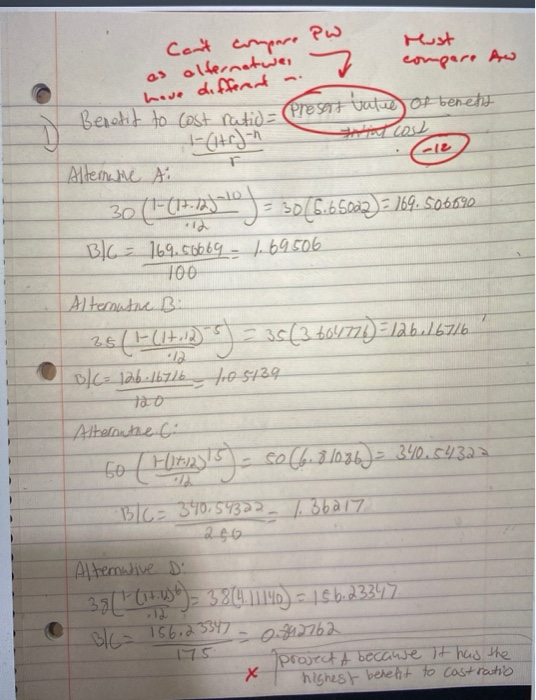 Can't compare PW
as alternatives
have different n.
Must
compare AW
1) Benefit to cost ratio = Present value of benefit
initial cost
1-(1+r)^-n
r
-12
Alternative A:
30(1-(1+.12)^-10 / .12) = 30(5.65022) = 169.506690
B/C = 169.50669 / 100 = 1.69506
Alternative B:
35(1-(1+.12)^-5 / .12) = 35(3.604776) = 126.16716
B/C = 126.16716 / 120 = 1.05139
Alternative C:
50(1-(1+.12)^15 / .12) = 50(6.81086) = 340.54322
B/C = 340.54322 / 250 = 1.36217
Alternative D:
38(1-(1+.12)^6 / .12) = 38(4.11140) = 156.23347
B/C = 156.23347 / 175 = 0.892762
x project A because it has the
highest benefit to cost ratio